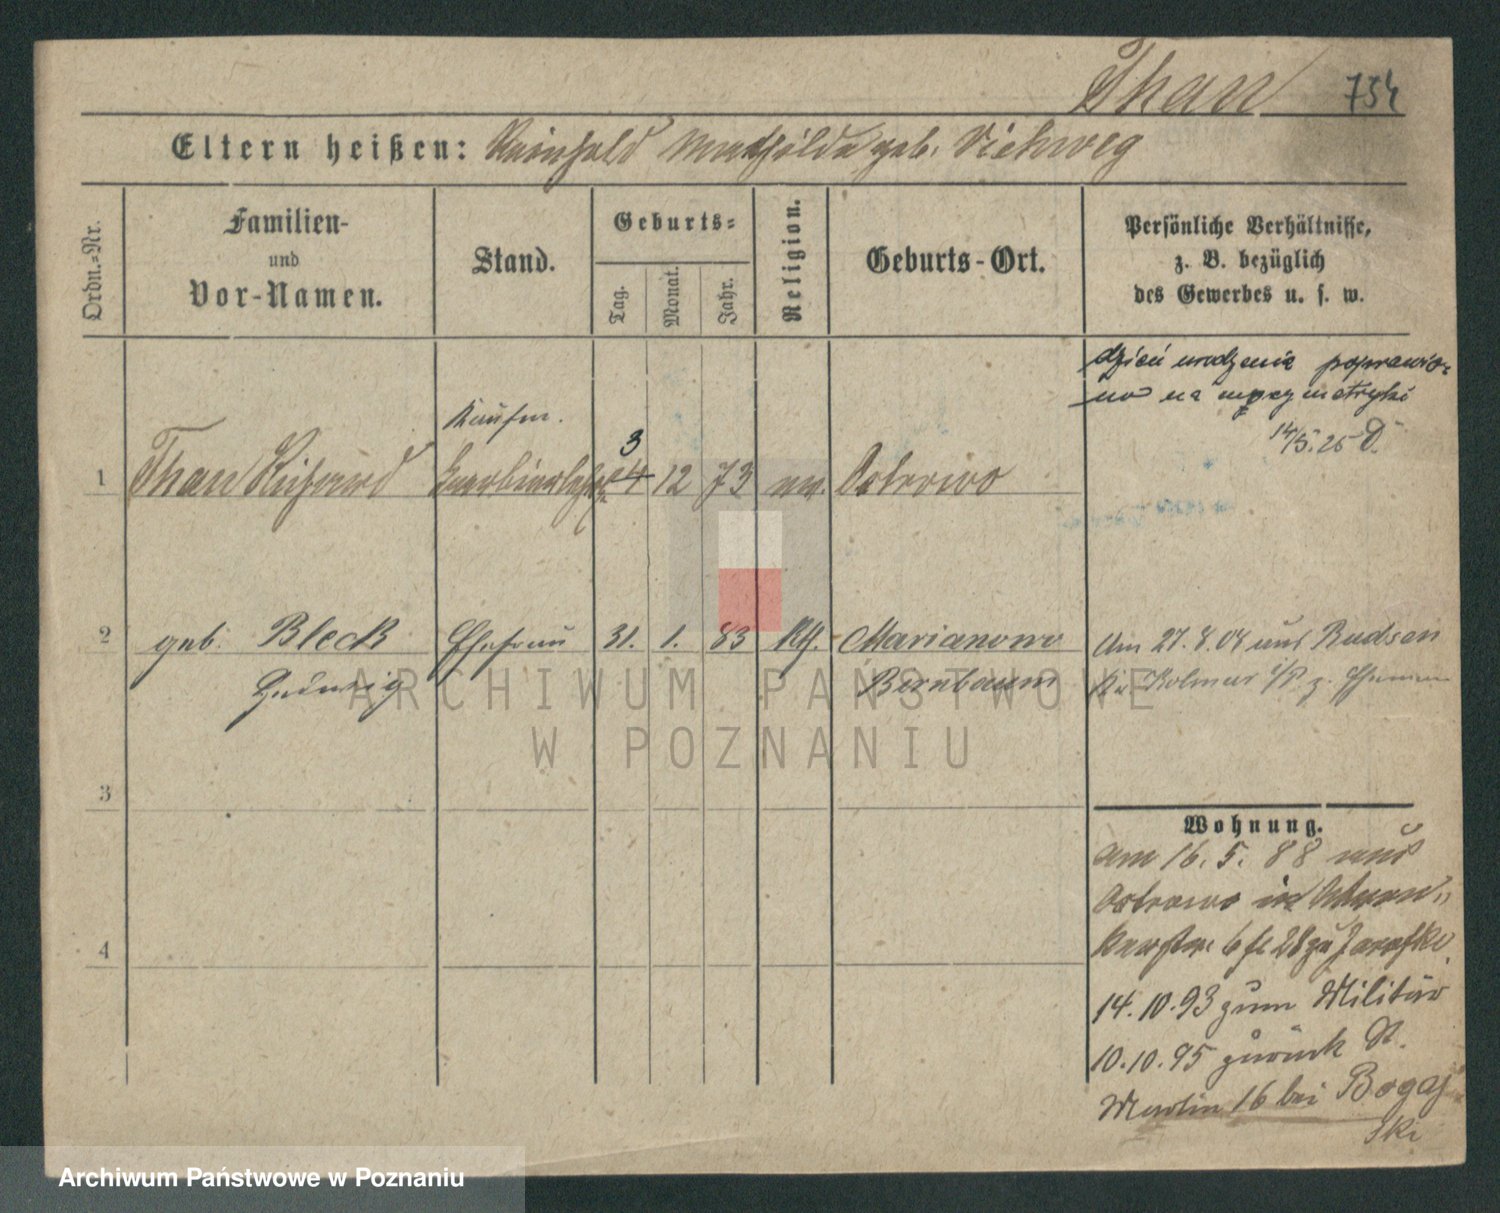 Than 754
Eltern heißen: Reinhold Mathilde geb. Viehweg
Ordn.-Nr.
Familien-
und
Vor-Namen.
Stand.
Geburts-
Tag.
Monat.
Jahr.
Religion.
Geburts-Ort.
Persönliche Verhältnisse,
z. B. bezüglich
des Gewerbes u. s. w.
dzień urodzenia poprawio-
no na mocy metryki
14/5. 25
Kaufm.
3
1 Than Richard 4 12 73 ev. Ostrowo
2 geb. Bleck Ehefrau 31. 1. 83 kth. Marianowo Am 27. 8. 04 aus Budsin
Hedwig Birnbaum Kr. Kolmar i/P z. Ehemann
3
4
Wohnung.
am 16. 5. 88 aus
Ostrowo in
28 zu
14. 10. 93 zum Militär
10. 10. 95 zurück St.
Martin 16 bei Bogaj
ski
ARCHIWUM PAŃSTWOWE
W POZNANIU
Archiwum Państwowe w Poznaniu